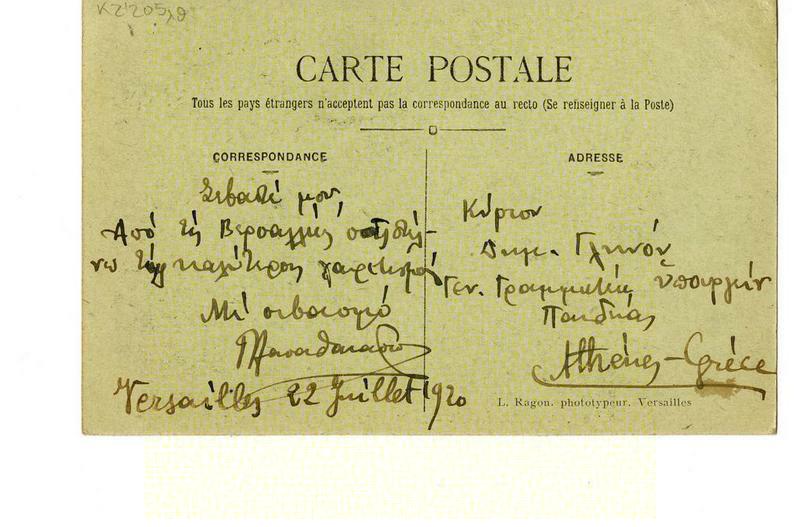 K22059
CARTE POSTALE
Tous les pays étrangers n'acceptent pas la correspondance au recto (Se renseigner à la Poste)
CORRESPONDANCE
Σεβαστέ μου,
Ἀπό τίς Βερσαλλίες σᾶς στέλ-
νω τούς καλύτερους χαιρετισμούς
Μέ σεβασμό
Versailles 22 Juillet 1920
ADRESSE
Κύριον
Δημ. Γληνόν
Γεν. Γραμματέα Ὑπουργείου
Παιδείας
Athènes - Grèce
L. Ragon. phototypeur. Versailles